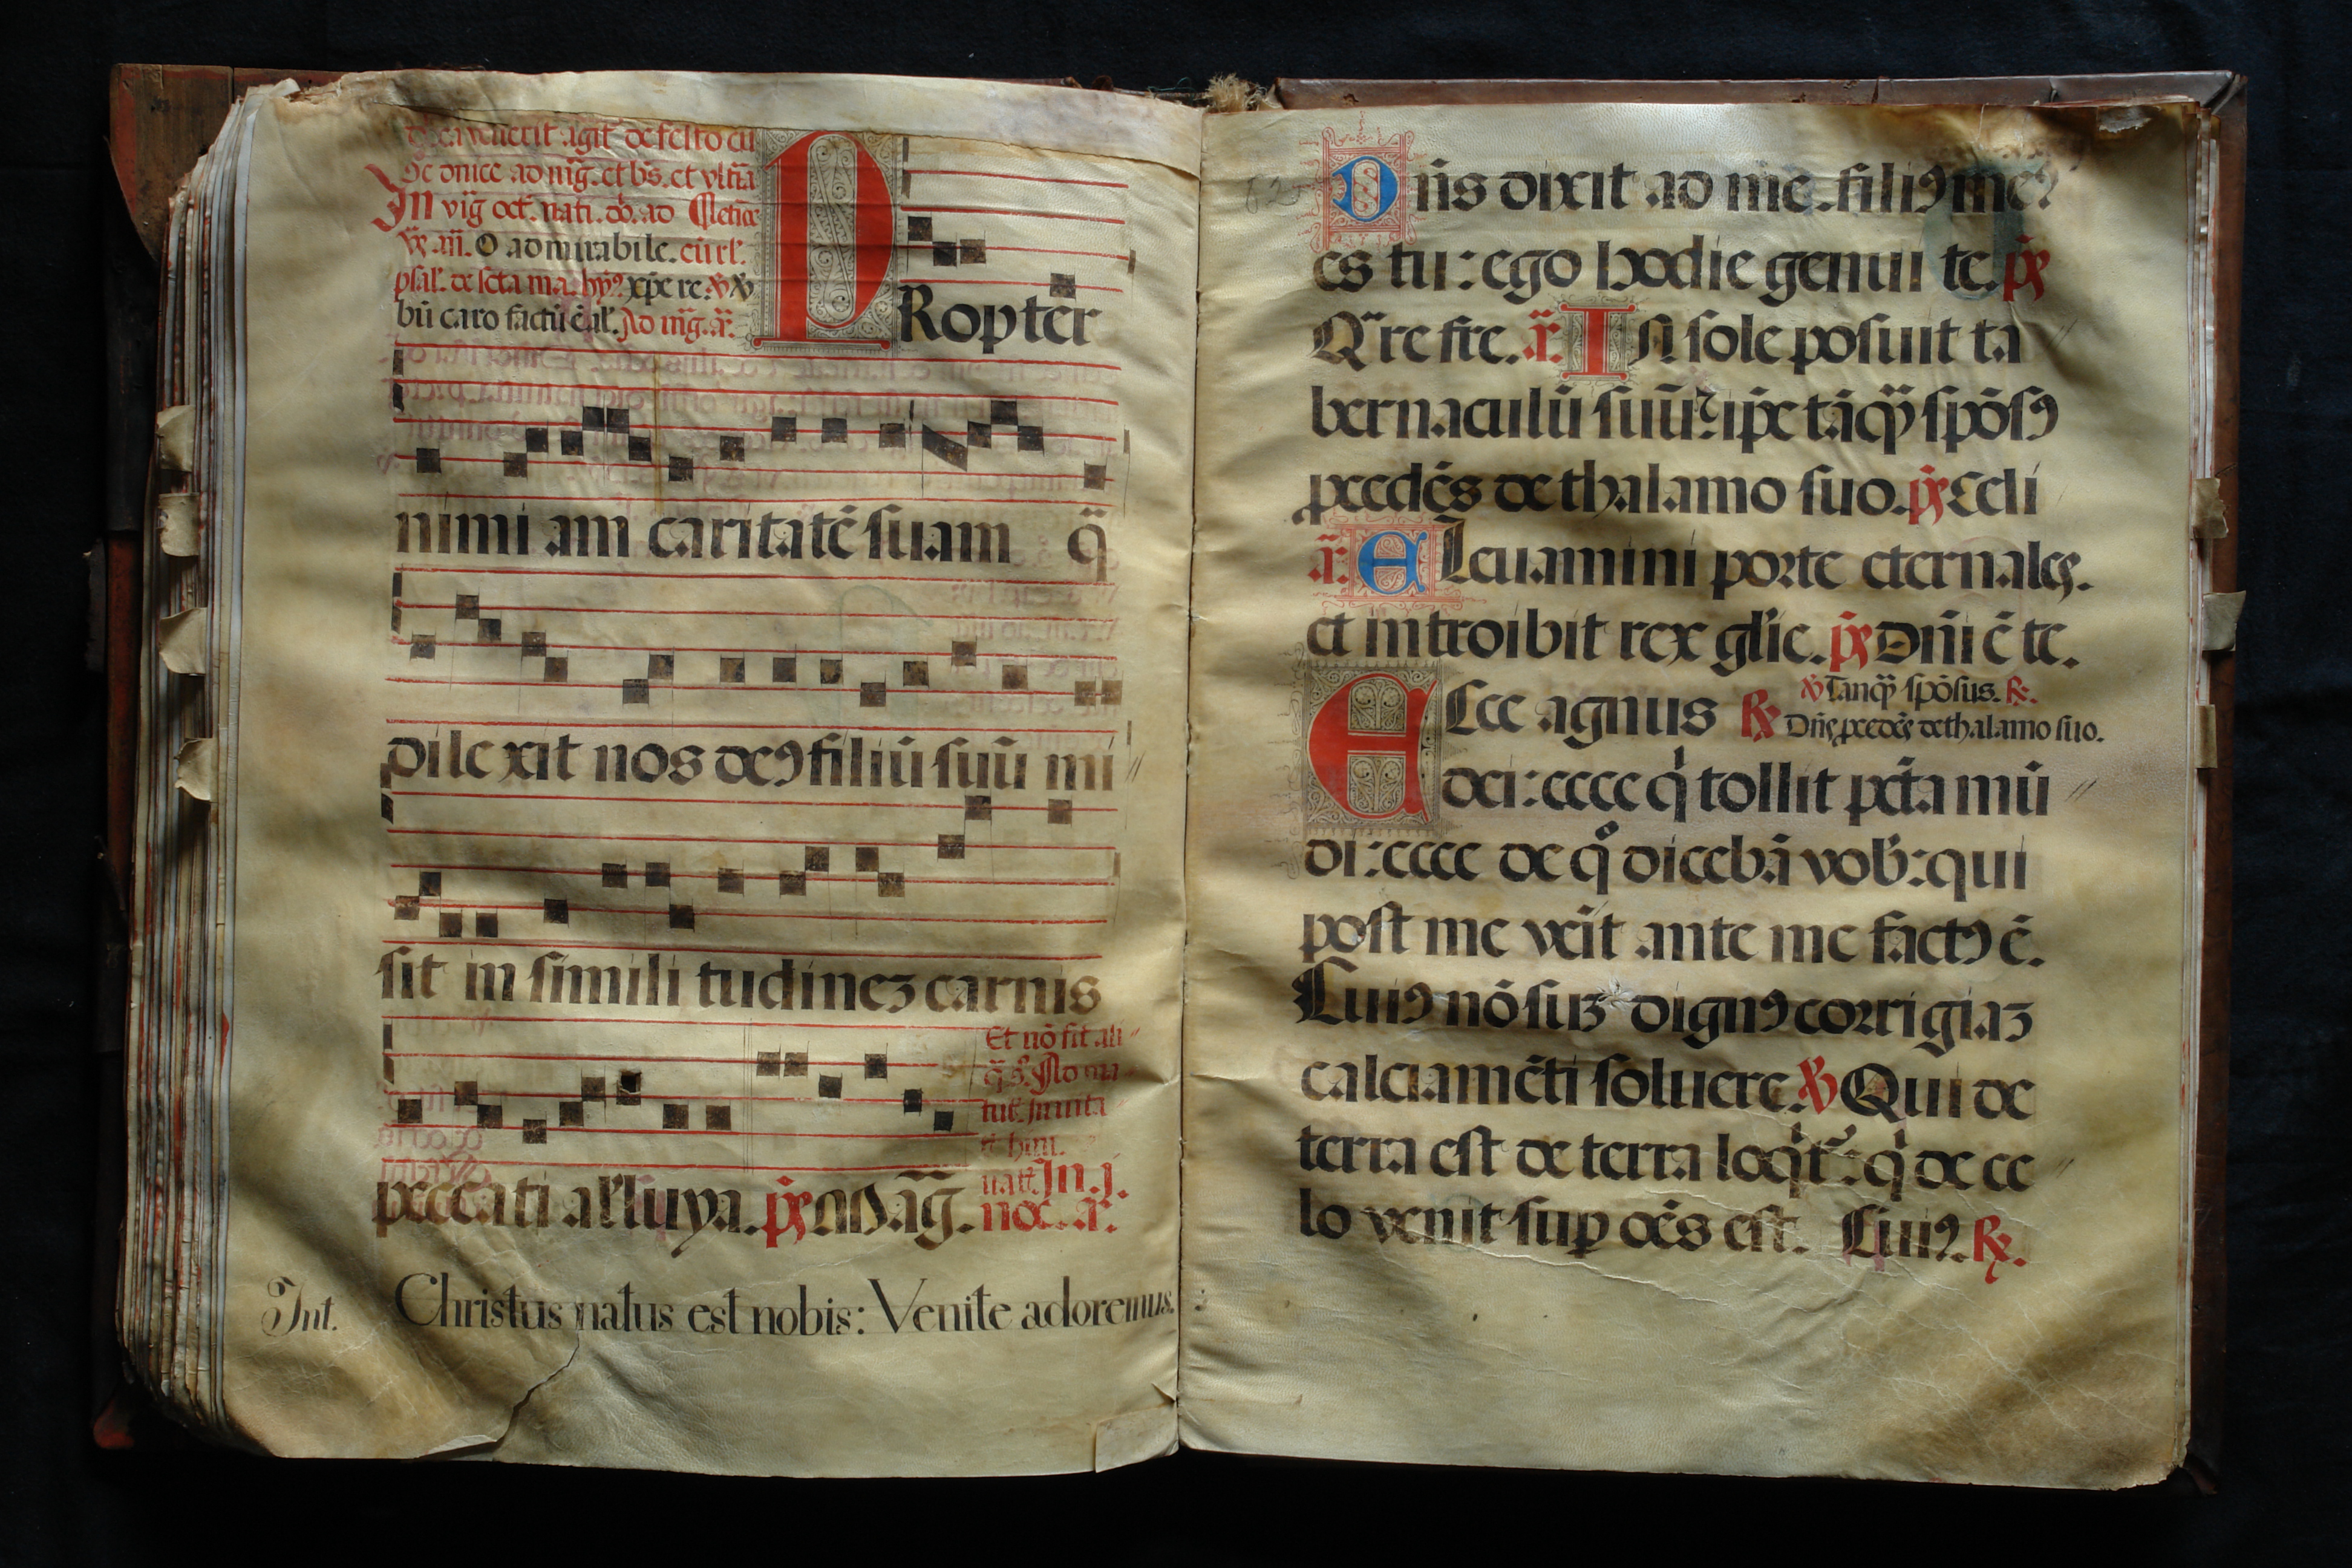 agit de festo cu
De dnice ad mg. et bs. et vltia
In vig oct. nati. dō. ad
v. añ. O admirabile. cū rl'.
psal'. de scta ma. hyꝰ xp̄e re. ℣ ℣
bū caro factū ē al'. Ad mg. añ.
PRopter
nimi am caritatē suam q̄
dile xit nos deꝰ filiū suū mi
sit in simili tudineʒ carnis
Et nō fit ali
peccati all'luya. p̄s Mag̃. In. j.
noc. añ.
Int. Christus natus est nobis: Venite adoremus.
62
Dn̄s dixit ad me. filiꝰ meꝰ
es tu: ego hodie genui te. p̄s
Qr̄e fre. añ. IN sole posuit ta
bernaculū suū: ⁊ ip̄e tāq̄ȝ spōsꝰ
ꝓcedēs de thalamo suo. p̄s Celi
añ. ELeuamini porte eternales.
et introibit rex gl'ie. p̄s Dn̄i ē te.
℣ Tanq̄ȝ spōsus. ℟.
ECce agnus ℟ Dn̄s ꝓcedēs de thalamo suo.
dei: ecce q̇ tollit pctā mū
di: ecce de q̊ dicebā vob': qui
post me vēit ante me factꝰ ē.
Cuiꝰ nō suʒ dignꝰ corrigiaʒ
calciamēti soluere. ℣ Qui de
terra est de terra loq̇t': q̇ de ce
lo venit suꝑ oēs est. Cuiꝰ. ℟.